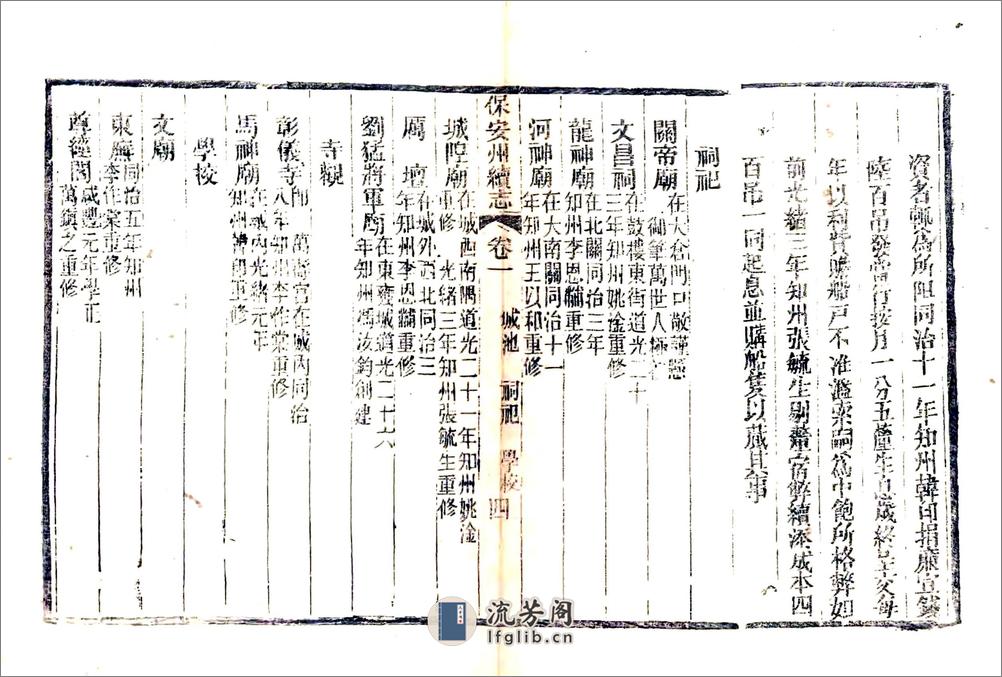 資者輒爲所阻同治十一年知州韓印捐廉宣錢
陸百吊發當行按月一分五釐生息歲終呈交每
年以利貲贍船戶不准濫索嗣爲中飽所格弊如
前光緒三年知州張毓生剔釐宿弊續添成本四
百吊一同起息並購船隻以蕆其事
祠祀
關帝廟在大倉門口敬謹懸
御筆萬世人極
文昌祠在鼓樓東街道光二十
三年知州姚淦重修
龍神廟在北關同治三年
知州李恩黼重修
河神廟在大南關同治十一
年知州王以和重修
保安州續志 卷一 城池 祠祀 學校 四
城隍廟在城西南隅道光二十一年知州姚淦
重修 光緒三年知州張毓生重修
厲壇在城外西北同治三
年知州李恩黼重修
劉猛將軍廟在東甕城道光二十六
年知州馮汝鈞創建
寺觀
彰儀寺即萬壽宮在城內同治
八年知州李作棠重修
馬神廟在城內光緒元年
知州韓朗重修
學校
文廟
東廡同治五年知州
李作棠重修
尊經閣咸豐元年學正
萬鎮之重修
流芳阁
lfglib.cn